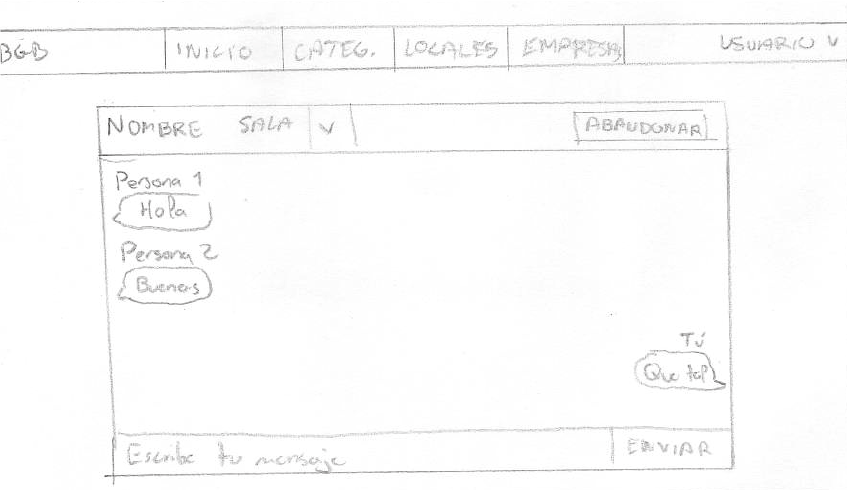 BGB INICIO CATEG. LOCALES EMPRESAS USUARIO V
NOMBRE SALA V ABANDONAR
Persona 1
Hola
Persona 2
Buenas
Tú
Que tal
Escribe tu mensaje ENVIAR